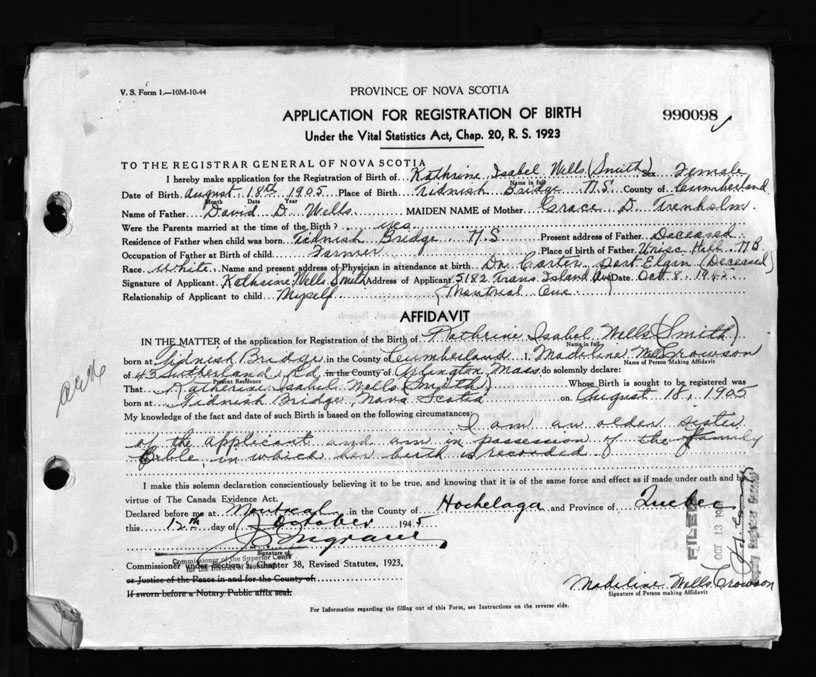 V. S. Form 1.—10M-10-44
PROVINCE OF NOVA SCOTIA
APPLICATION FOR REGISTRATION OF BIRTH
990098
Under the Vital Statistics Act, Chap. 20, R. S. 1923
TO THE REGISTRAR GENERAL OF NOVA SCOTIA
I hereby make application for the Registration of Birth of Kathrine Isabel Wells (Smith) Sex Female
Name in full
Date of Birth August 18th 1905 Place of Birth Tidnish Bridge N.S. County of Cumberland
Month Date Year
Name of Father David D. Wells MAIDEN NAME of Mother Grace D. Trenholm
Were the Parents married at the time of the Birth? yes
Residence of Father when child was born Tidnish Bridge N.S Present address of Father Deceased
Occupation of Father at Birth of child Farmer Place of birth of Father Hill N B
Race White Name and present address of Physician in attendance at birth Dr. Carter Port Elgin (Deceased)
Signature of Applicant Kathrine Wells Smith Address of Applicant 5182 Trans Island Ave Date Oct. 8, 1945
Relationship of Applicant to child Myself (Montreal Que
AFFIDAVIT
IN THE MATTER of the application for Registration of the Birth of Kathrine Isabel Wells (Smith)
Name in full
born at Tidnish Bridge in the County of Cumberland I, Madeline Wells Crowson
Name of Person Making Affidavit
of 43 Sutherland Rd, in the County of Arlington Mass do solemnly declare:
Present Residence
That Katherine Isabel Wells (Smith) Whose Birth is sought to be registered was
born at Tidnish Bridge, Nova Scotia on August 18, 1905
My knowledge of the fact and date of such Birth is based on the following circumstances: I am an older sister
of the applicant and am in possession of the family
Bible, in which her birth is recorded.
I make this solemn declaration conscientiously believing it to be true, and knowing that it is of the same force and effect as if made under oath and by
virtue of The Canada Evidence Act.
Declared before me at Montreal in the County of Hochelaga and Province of Quebec
this 12th day of October 1945
Signature of
Commissioner of the Superior Court
for the District of Montreal
Commissioner under Section 9, Chapter 38, Revised Statutes, 1923,
or Justice of the Peace in and for the County of
If sworn before a Notary Public affix seal.
Madeline Wells Crowson
Signature of Person making Affidavit
For Information regarding the filling out of this Form, see Instructions on the reverse side.
FILED
OCT 13